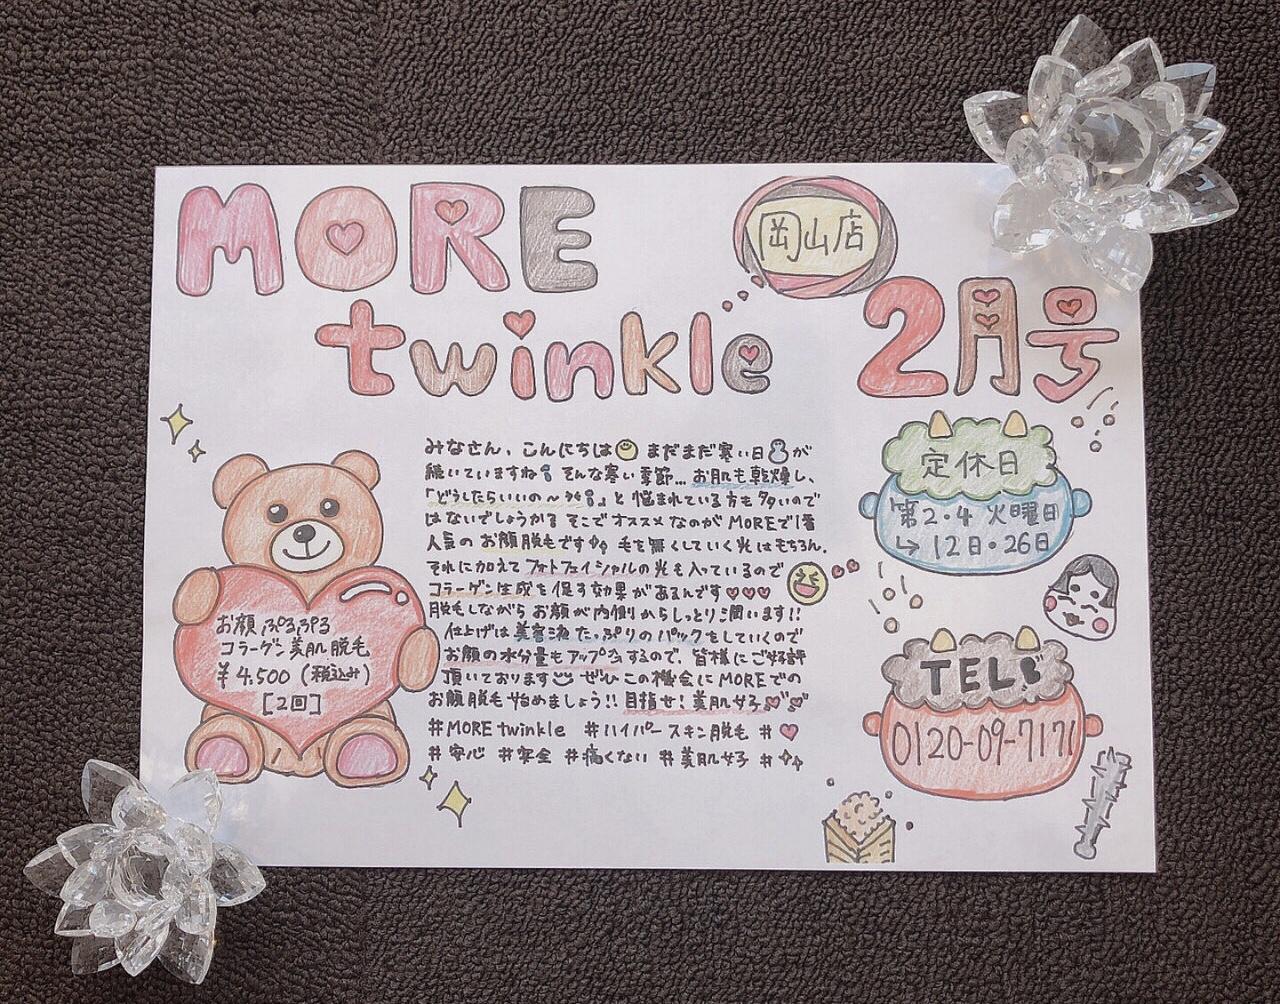 MORE
twinkle
岡山店
2月号
みなさん、こんにちは まだまだ寒い日が
続いていますね そんな寒い季節…お肌も乾燥し、
「どうしたらいいの〜??」と悩まれている方も多いので
はないでしょうか?? そこでオススメなのがMOREで1番
人気のお顔脱毛です 毛を無くしていく光はもちろん、
それに加えてフォトフェイシャルの光も入っているので
コラーゲン生成を促す効果があるんです♡♡♡
脱毛しながらお顔が内側からしっとり潤います!!
仕上げは美容液たっぷりのパックをしていくので
お顔の水分量もアップするので、皆様にご好評
頂いております ぜひこの機会にMOREでの
お顔脱毛始めましょう!! 目指せ!美肌女子
#MORE twinkle #ハイパースキン脱毛 #♡
#安心 #安全 #痛くない #美肌女子 #
お顔ぷるぷる
コラーゲン美肌脱毛
¥4,500(税込み)
[2回]
定休日
第2・4 火曜日
↳ 12日・26日
TEL
0120-09-7171